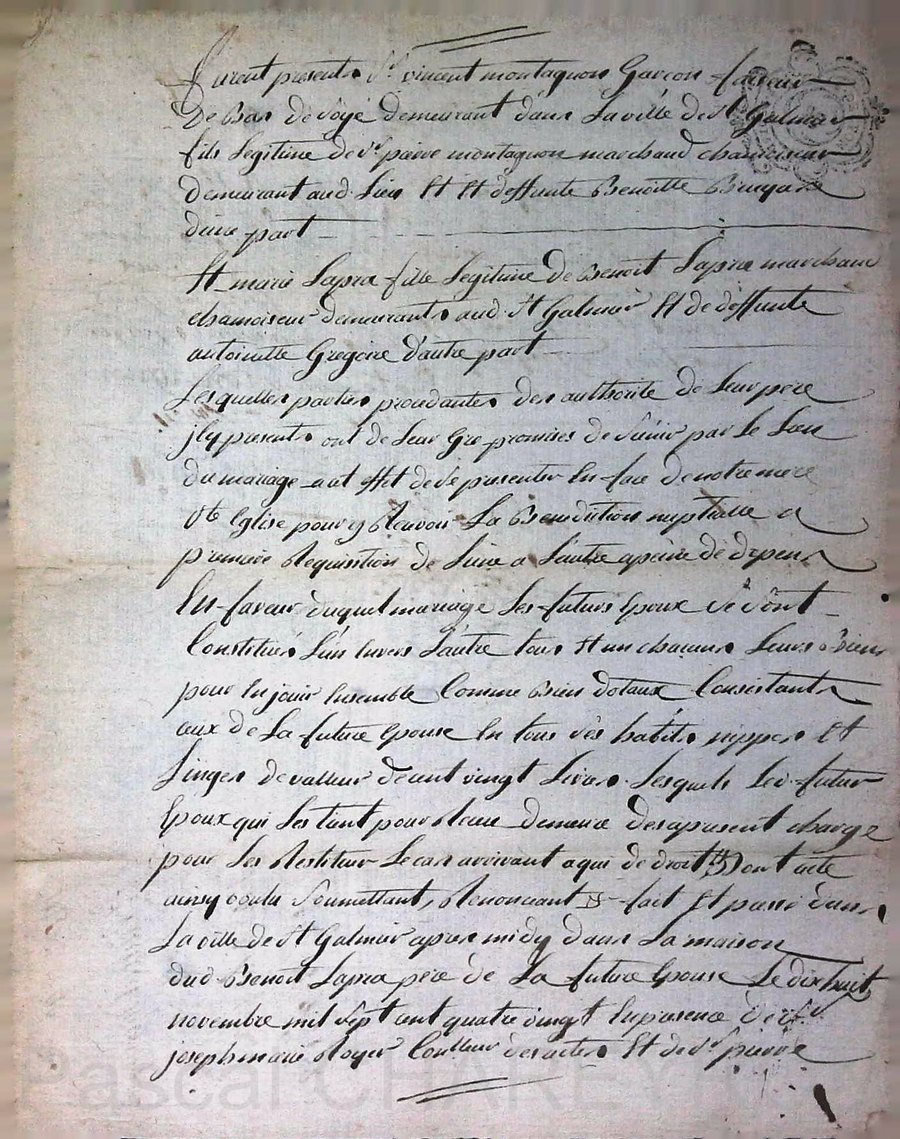 furent presents Sr vincent montagnon Garcon faiseur
De Bas de soye demeurant dans La ville de St Galmier
fils Legitime de Sr pierre montagnon marchand chamoiseur
demeurant aud. Lieu Et Et deffunte Benoitte Bruyere
dune part
Et marie Lapra fille Legitime de Benoit Lapra marchand
chamoiseur demeurants aud. St Galmier Et de deffunte
antoinette Gregoire d'autre part
Lesquelles parties procedantes des authorité de Leur père
jcy presents ont de Leur Gre promises de S'unir par Le Lien
du mariage a cet effet de se presenter En face de notre mere
Ste Eglise pour y Recevoir La Benediction nuptialle a
premiere Requisition de L'une a L'autre apeine de depens
En faveur duquel mariage Les futurs Epoux se sont
Constitués L'un Envers L'autre tous Et un chacuns Leurs Biens
pour En jouir Ensemble Comme Bien dotaux Consistants
ceux de La future Epouse En tous ses habits nippes Et
Linges de valleur de cent vingt Livres Lesquels Led. futur
Epoux qui Les tient pour Receu demeure des apresent chargé
pour Les Restituer Le cas arrivant a qui de droit Dont acte
ainsy voulu Soumettant, Renonceant fait Et passé dans
La ville de St Galmier apres midy dans La maison
dud Benoit Lapra pere de La future Epouse Le dix huit
novembre mil Sept cent quatre vingt En presence de Sr
joseph marie Royer Conlleur des actes Et de Sr pierre
Pascal CHAREYRON